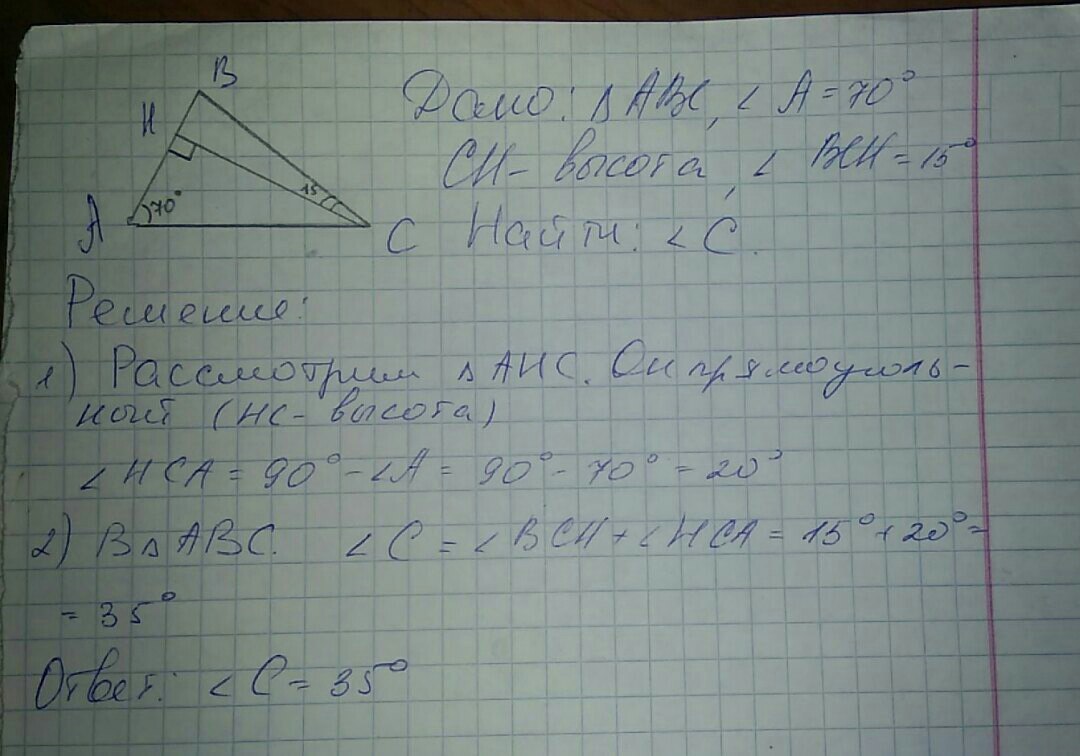 B
H
15
70°
A
C
Дано: △ABC, ∠A = 70°
CH - высота, ∠BCH = 15°
Найти: ∠C.
Решение:
1) Рассмотрим △AHC. Он прямоуголь-
ный (HC - высота)
∠HCA = 90° - ∠A = 90° - 70° = 20°
2) В △ABC. ∠C = ∠BCH + ∠HCA = 15° + 20° =
= 35°
Ответ: ∠C = 35°